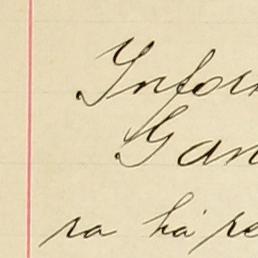 Infor
Gan
ra há re